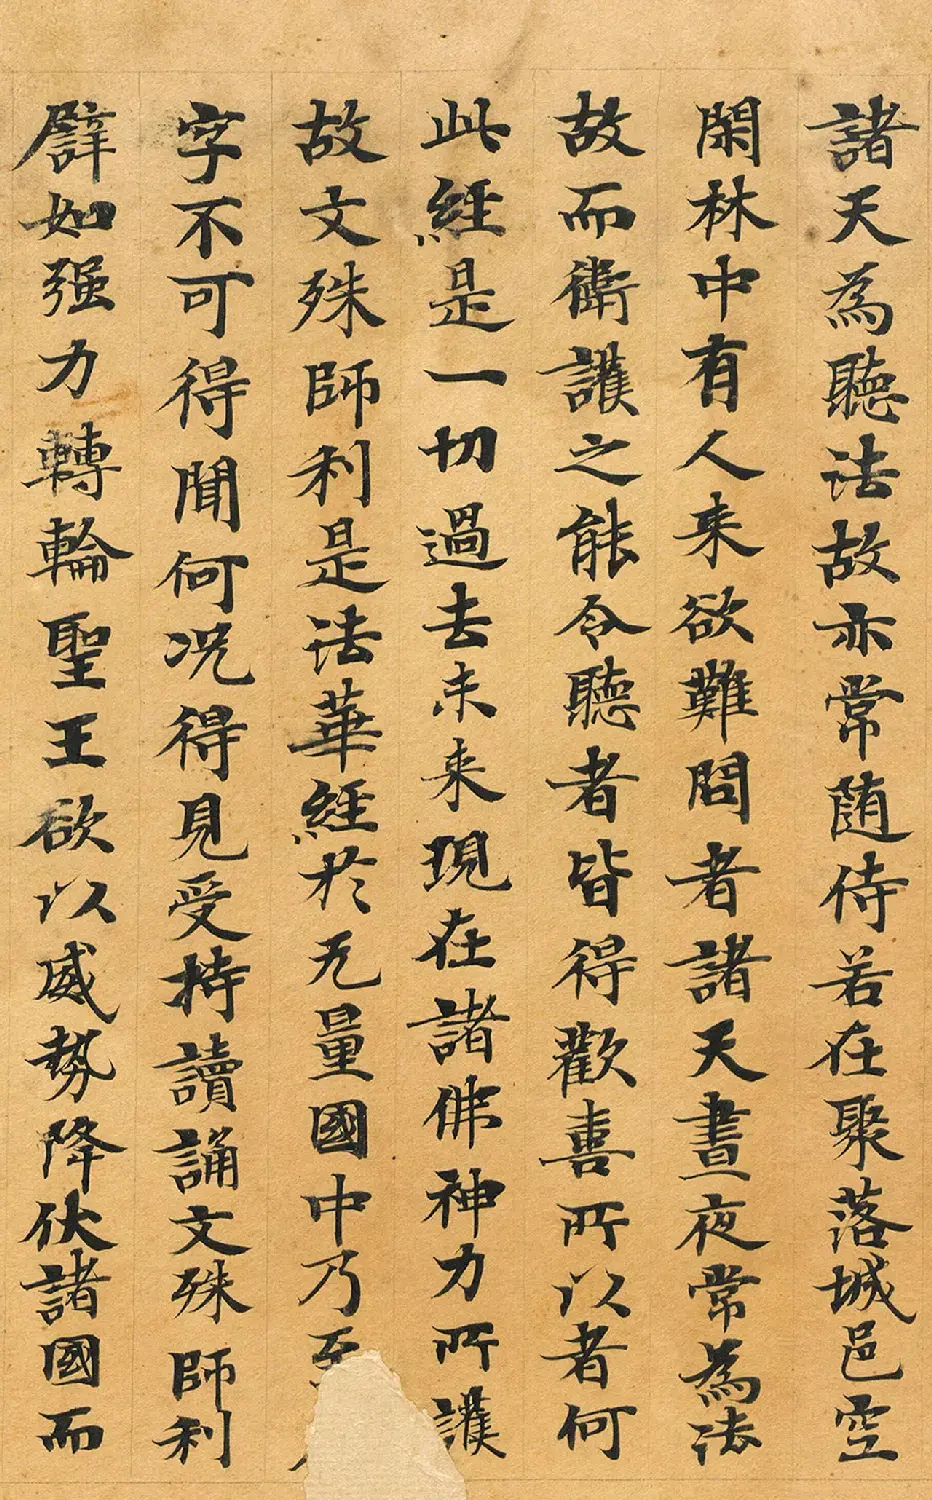 諸天為聽法故亦常随侍若在聚落城邑空
閑林中有人来欲難問者諸天晝夜常為法
故而衛護之能令聽者皆得歡喜所以者何
此經是一切過去未来現在諸佛神力所護
故文殊師利是法華經於无量國中乃至
字不可得聞何况得見受持讀誦文殊師利
譬如强力轉輪聖王欲以威勢降伏諸國而